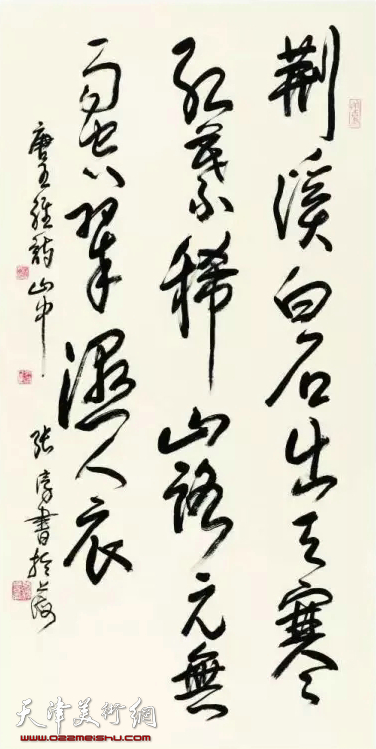 荆溪白石出天寒
紅葉稀山路元無
雨空翠濕人衣
唐王維詩山中
張書於上海
天津美术网
www.022meishu.com